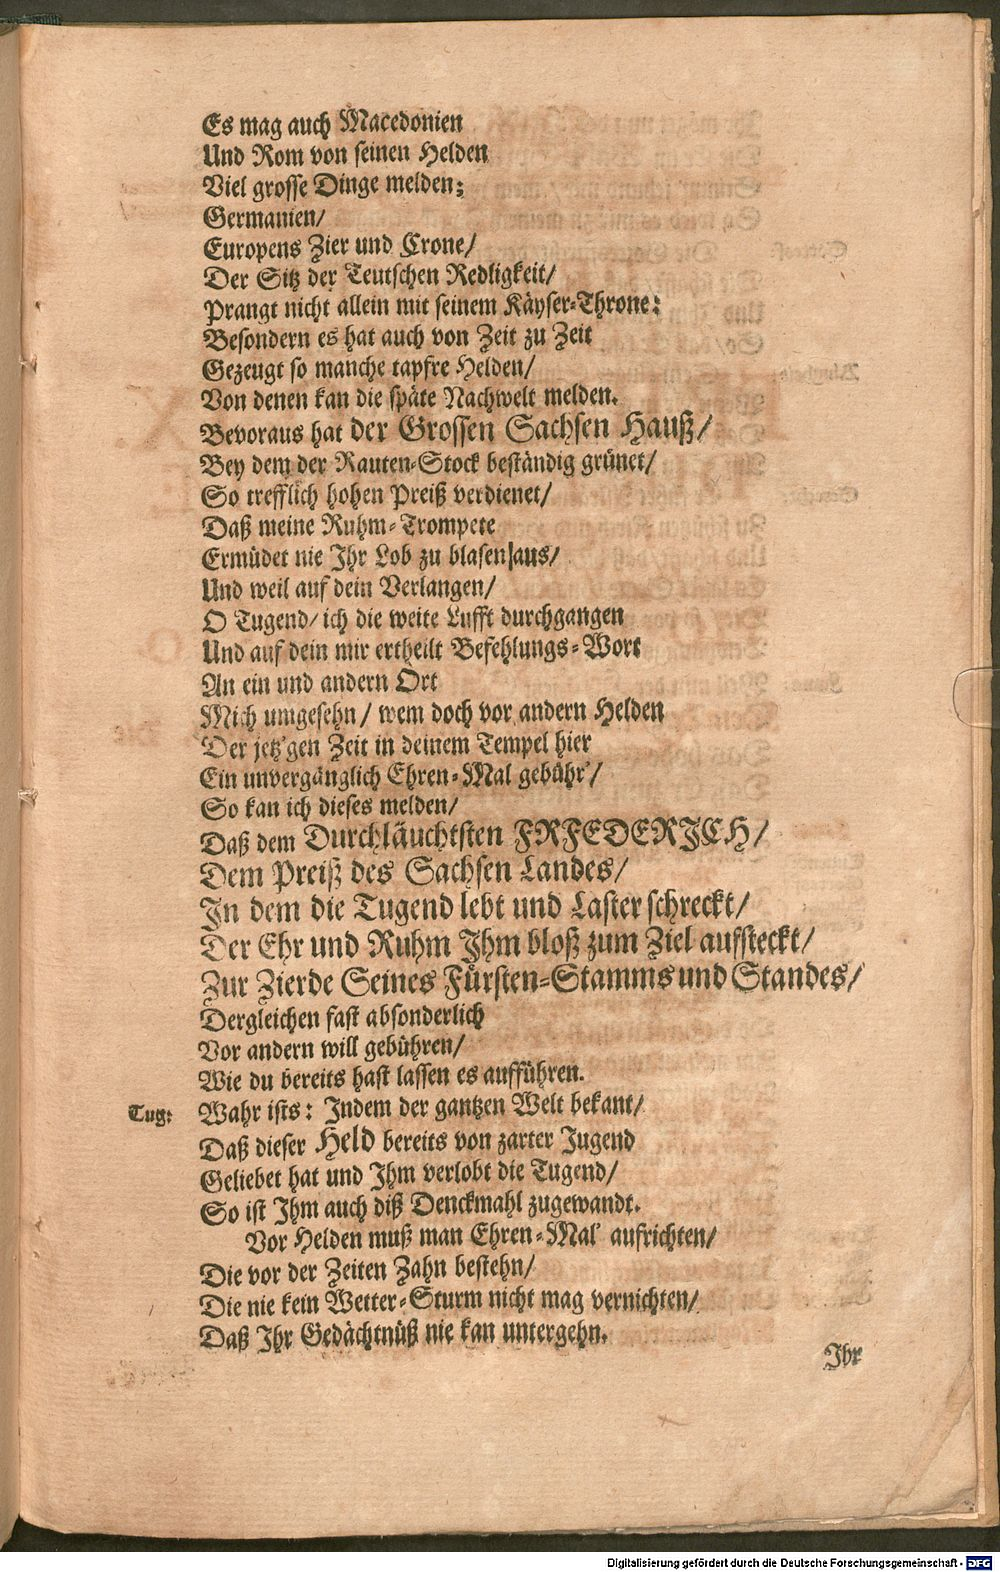 Es mag auch Macedonien
Und Rom von seinen Helden
Viel grosse Dinge melden;
Germanien/
Europens Zier und Crone/
Der Sitz der Teutschen Redligkeit/
Prangt nicht allein mit seinem Käyser-Throne:
Besondern es hat auch von Zeit zu Zeit
Gezeugt so manche tapfre Helden/
Von denen kan die späte Nachwelt melden.
Bevoraus hat der Grossen Sachsen Hauß/
Bey dem der Rauten-Stock beständig grünet/
So trefflich hohen Preiß verdienet/
Daß meine Ruhm-Trompete
Ermüdet nie Ihr Lob zu blasen|aus/
Und weil auf dein Verlangen/
O Tugend/ ich die weite Lufft durchgangen
Und auf dein mir ertheilt Befehlungs-Wort
An ein und andern Ort
Mich umgesehn/ wem doch vor andern Helden
Der jetz'gen Zeit in deinem Tempel hier
Ein unvergänglich Ehren-Mal gebühr'/
So kan ich dieses melden/
Daß dem Durchläuchtsten FRFEDERJCH/
Dem Preiß des Sachsen Landes/
In dem die Tugend lebt und Laster schreckt/
Der Ehr und Ruhm Ihm bloß zum Ziel aufsteckt/
Zur Zierde Seines Fürsten-Stamms und Standes/
Dergleichen fast absonderlich
Vor andern will gebühren/
Wie du bereits hast lassen es aufführen.
Tug: Wahr ists: Indem der gantzen Welt bekant/
Daß dieser Held bereits von zarter Jugend
Geliebet hat und Ihm verlobt die Tugend/
So ist Ihm auch diß Denckmahl zugewandt.
Vor Helden muß man Ehren-Mal' aufrichten/
Die vor der Zeiten Zahn bestehn/
Die nie kein Wetter-Sturm nicht mag vernichten/
Daß Ihr Gedächtnüß nie kan untergehn.
Ihr
Digitalisierung gefördert durch die Deutsche Forschungsgemeinschaft - DFG